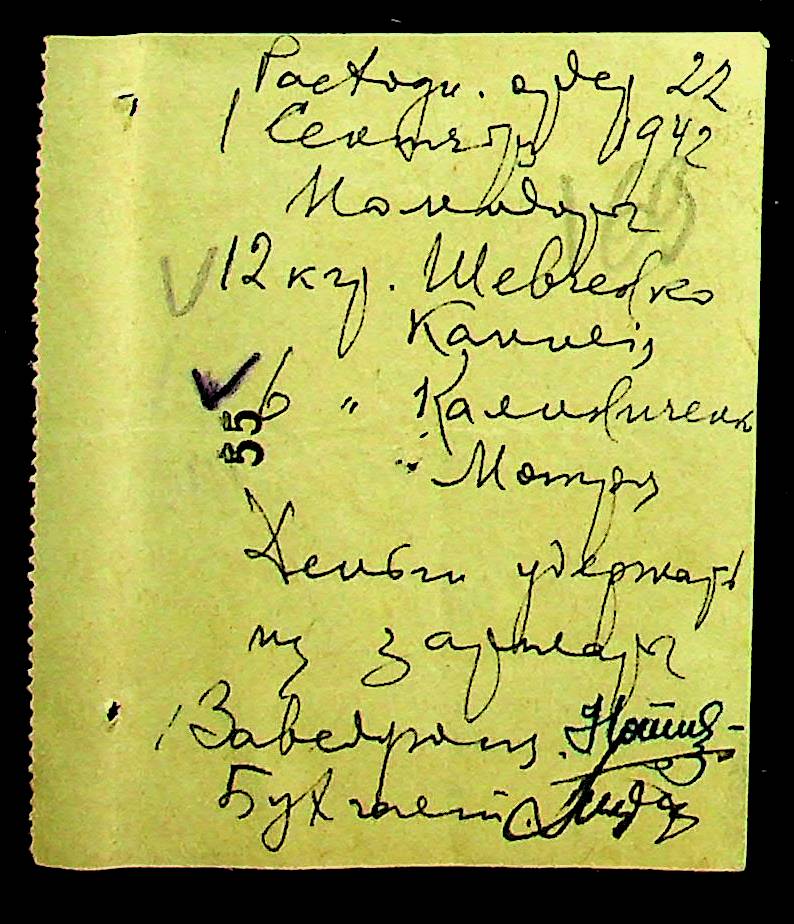 Расходн. ордер 22
1 Сентября 1942
Помидоры
12 кгр. Шевченко
6 " Калиниченк
Мотря
55
Деньги удержать
из зарплаты
Заведующ.
Бухгалт.